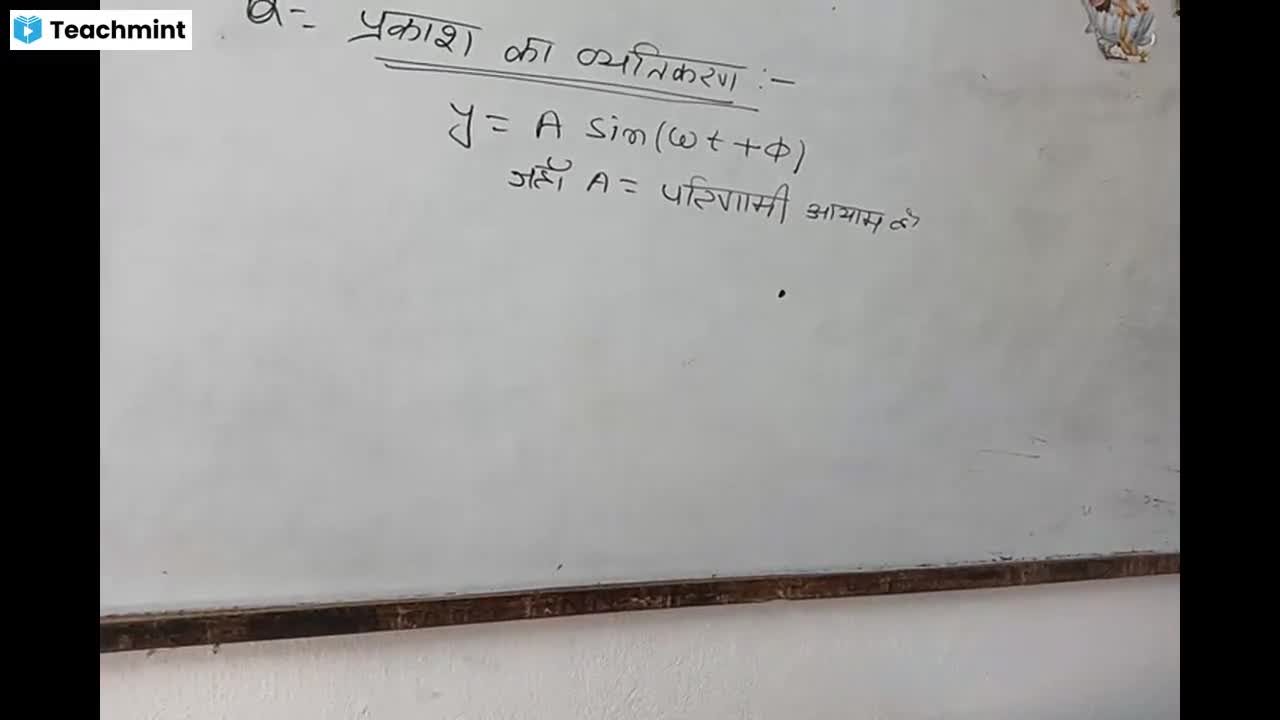 Teachmint
Q= प्रकाश का व्यतिकरण :-
y = A sin(ωt+ϕ)
जहाँ A = परिणामी आयाम है